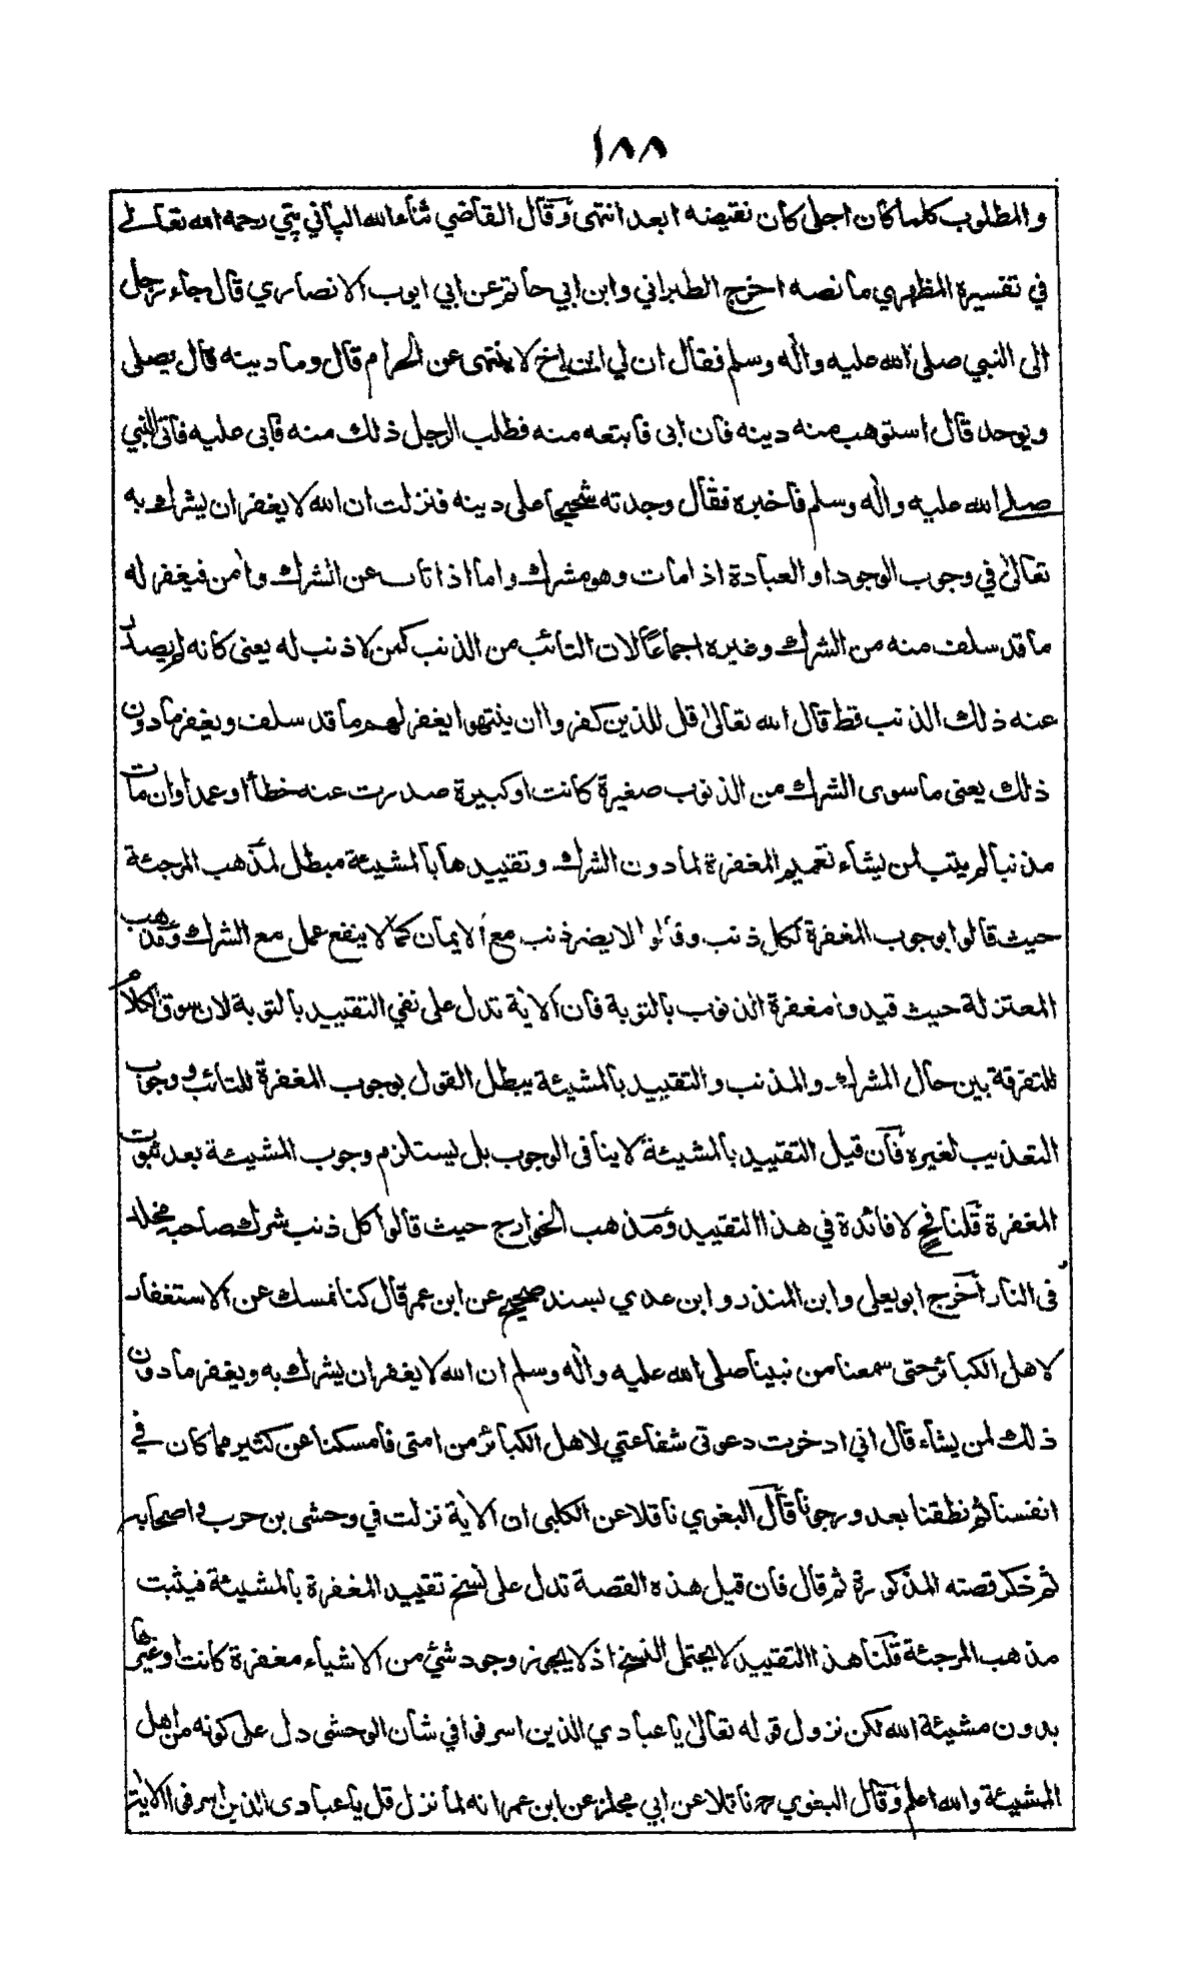 ١٨٨
والمطلوب كلما كان اجلى كان نقيضه ابعد انتهى وقال القاضي ثناء الله الپاني پتي رحمه الله تعالى
في تفسيره المظهري ما نصه اخرج الطبراني وابن ابي حاتم عن ابي ايوب الانصاري قال جاء رجل
الى النبي صلى الله عليه واٰله وسلم فقال ان لي ابن اخ لا ينتهى عن الحرام قال وما دينه قال يصلى
ويوحد قال استوهب منه دينه فان ابى فابتعه منه فطلب الرجل ذلك منه فابى عليه فاتى النبي
صلى الله عليه واٰله وسلم فاخبره فقال وجدته شحيحا على دينه فنزلت ان الله لا يغفر ان يشرك به
تعالىٰ في وجوب الوجود او العبادة اذا مات وهو مشرك واما اذا تاب عن الشرك واٰمن فيغفر له
ما قد سلف منه من الشرك وغيره اجماعًا لان التائب من الذنب كمن لا ذنب له يعنى كانه لم يصدر
عنه ذلك الذنب قط قال الله تعالىٰ قل للذين كفروا ان ينتهوا يغفر لهم ما قد سلف ويغفر ما دون
ذلك يعنى ما سوى الشرك من الذنوب صغيرة كانت او كبيرة صدرت عنه خطأ او عمدا وان مات
مذنبا لم يتب لمن يشاء تعميم المغفرة لما دون الشرك وتقييدها بالمشيئة مبطل لمذهب المرجئة
حيث قالوا بوجوب المغفرة لكل ذنب وقالوا لا يضر ذنب مع الايمان كما لا ينفع عمل مع الشرك ومذهب
المعتزلة حيث قيدوا مغفرة الذنوب بالتوبة فان الاٰية تدل على نفي التقييد بالتوبة لان سوق الكلام
للتفرقة بين حال المشرك والمذنب والتقييد بالمشيئة يبطل القول بوجوب المغفرة للتائب ووجوب
التعذيب لغيره فان قيل التقييد بالمشيئة لا ينافى الوجوب بل يستلزم وجوب المشيئة بعد ثبوت
المغفرة قلنا فح لا فائدة في هذا التقييد ومذهب الخوارج حيث قالوا كل ذنب شرك صاحبه مخلد
فى النار اخرج ابو يعلى وابن المنذر وابن عدي بسند صحيح عن ابن عمر قال كنا نمسك عن الاستغفار
لاهل الكبائر حتى سمعنا من نبينا صلى الله عليه واٰله وسلم ان الله لا يغفر ان يشرك به ويغفر ما دون
ذلك لمن يشاء قال اني ادخرت دعوتى شفاعتي لاهل الكبائر من امتى فامسكنا عن كثير مما كان في
انفسنا ثم نطقنا بعد ورجونا قال البغوي ناقلا عن الكلبى ان الاٰية نزلت في وحشى بن حرب واصحابه
ثم ذكر قصته المذكورة ثم قال فان قيل هذه القصة تدل على نسخ تقييد المغفرة بالمشيئة فيثبت
مذهب المرجئة قلنا هذا التقييد لا يحتمل النسخ اذ لا يجوز وجود شئ من الاشياء مغفرة كانت او غيرها
بدون مشيئة الله لكن نزول قوله تعالىٰ يا عبادي الذين اسرفوا في شان الوحشى دل على كونه من اهل
المشيئة والله اعلم وقال البغوي رح ناقلا عن ابي مجلز عن ابن عمر انه لما نزل قل يا عبادى الذين اسرفوا الاٰية